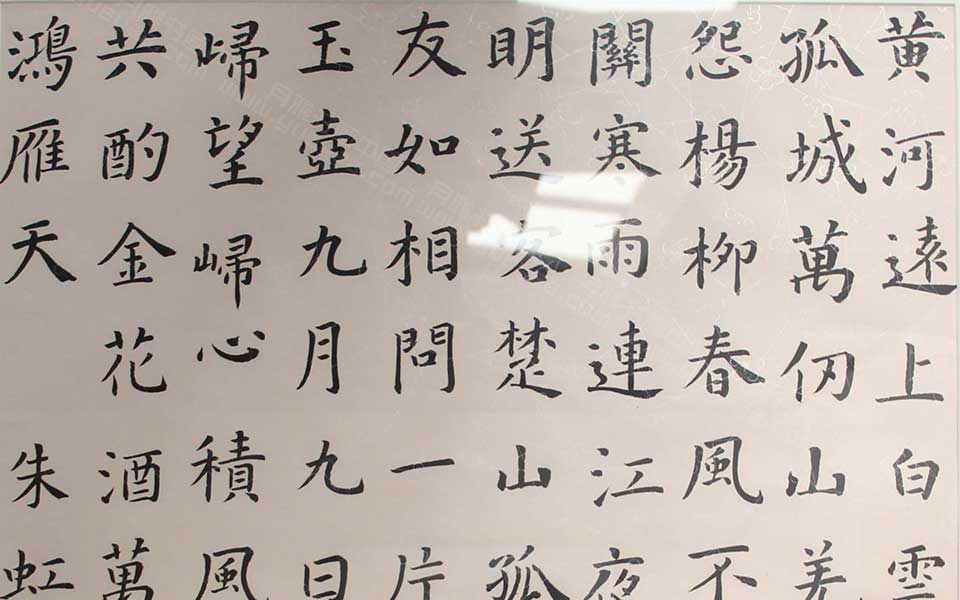 黄河遠上白雲
孤城萬仞山羌
怨楊柳春風不
關寒雨連江夜
明送客楚山孤
友如相問一片
玉壺九月九日
㱕望㱕心積風
共酌金花酒萬
鴻雁天朱虹